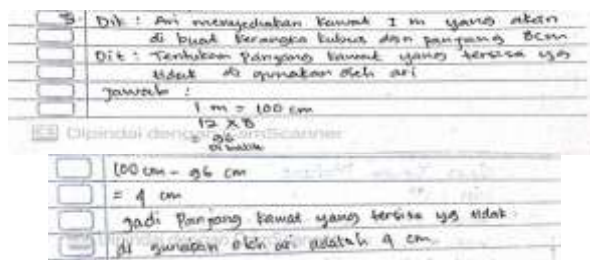 3. Dik : Ari menyediakan kawat 1 m yang akan
di buat kerangka kubus dgn panjang 8cm
Dit : Tentukan panjang kawat yang tersisa yg
tidak di gunakan oleh ari
Jawab :
1 m = 100 cm
12 x 8
= 96
Dipindai dengan CamScanner
100 cm - 96 cm
= 4 cm
Jadi Panjang kawat yang tersisa yg tidak
di gunakan oleh ari adalah 4 cm